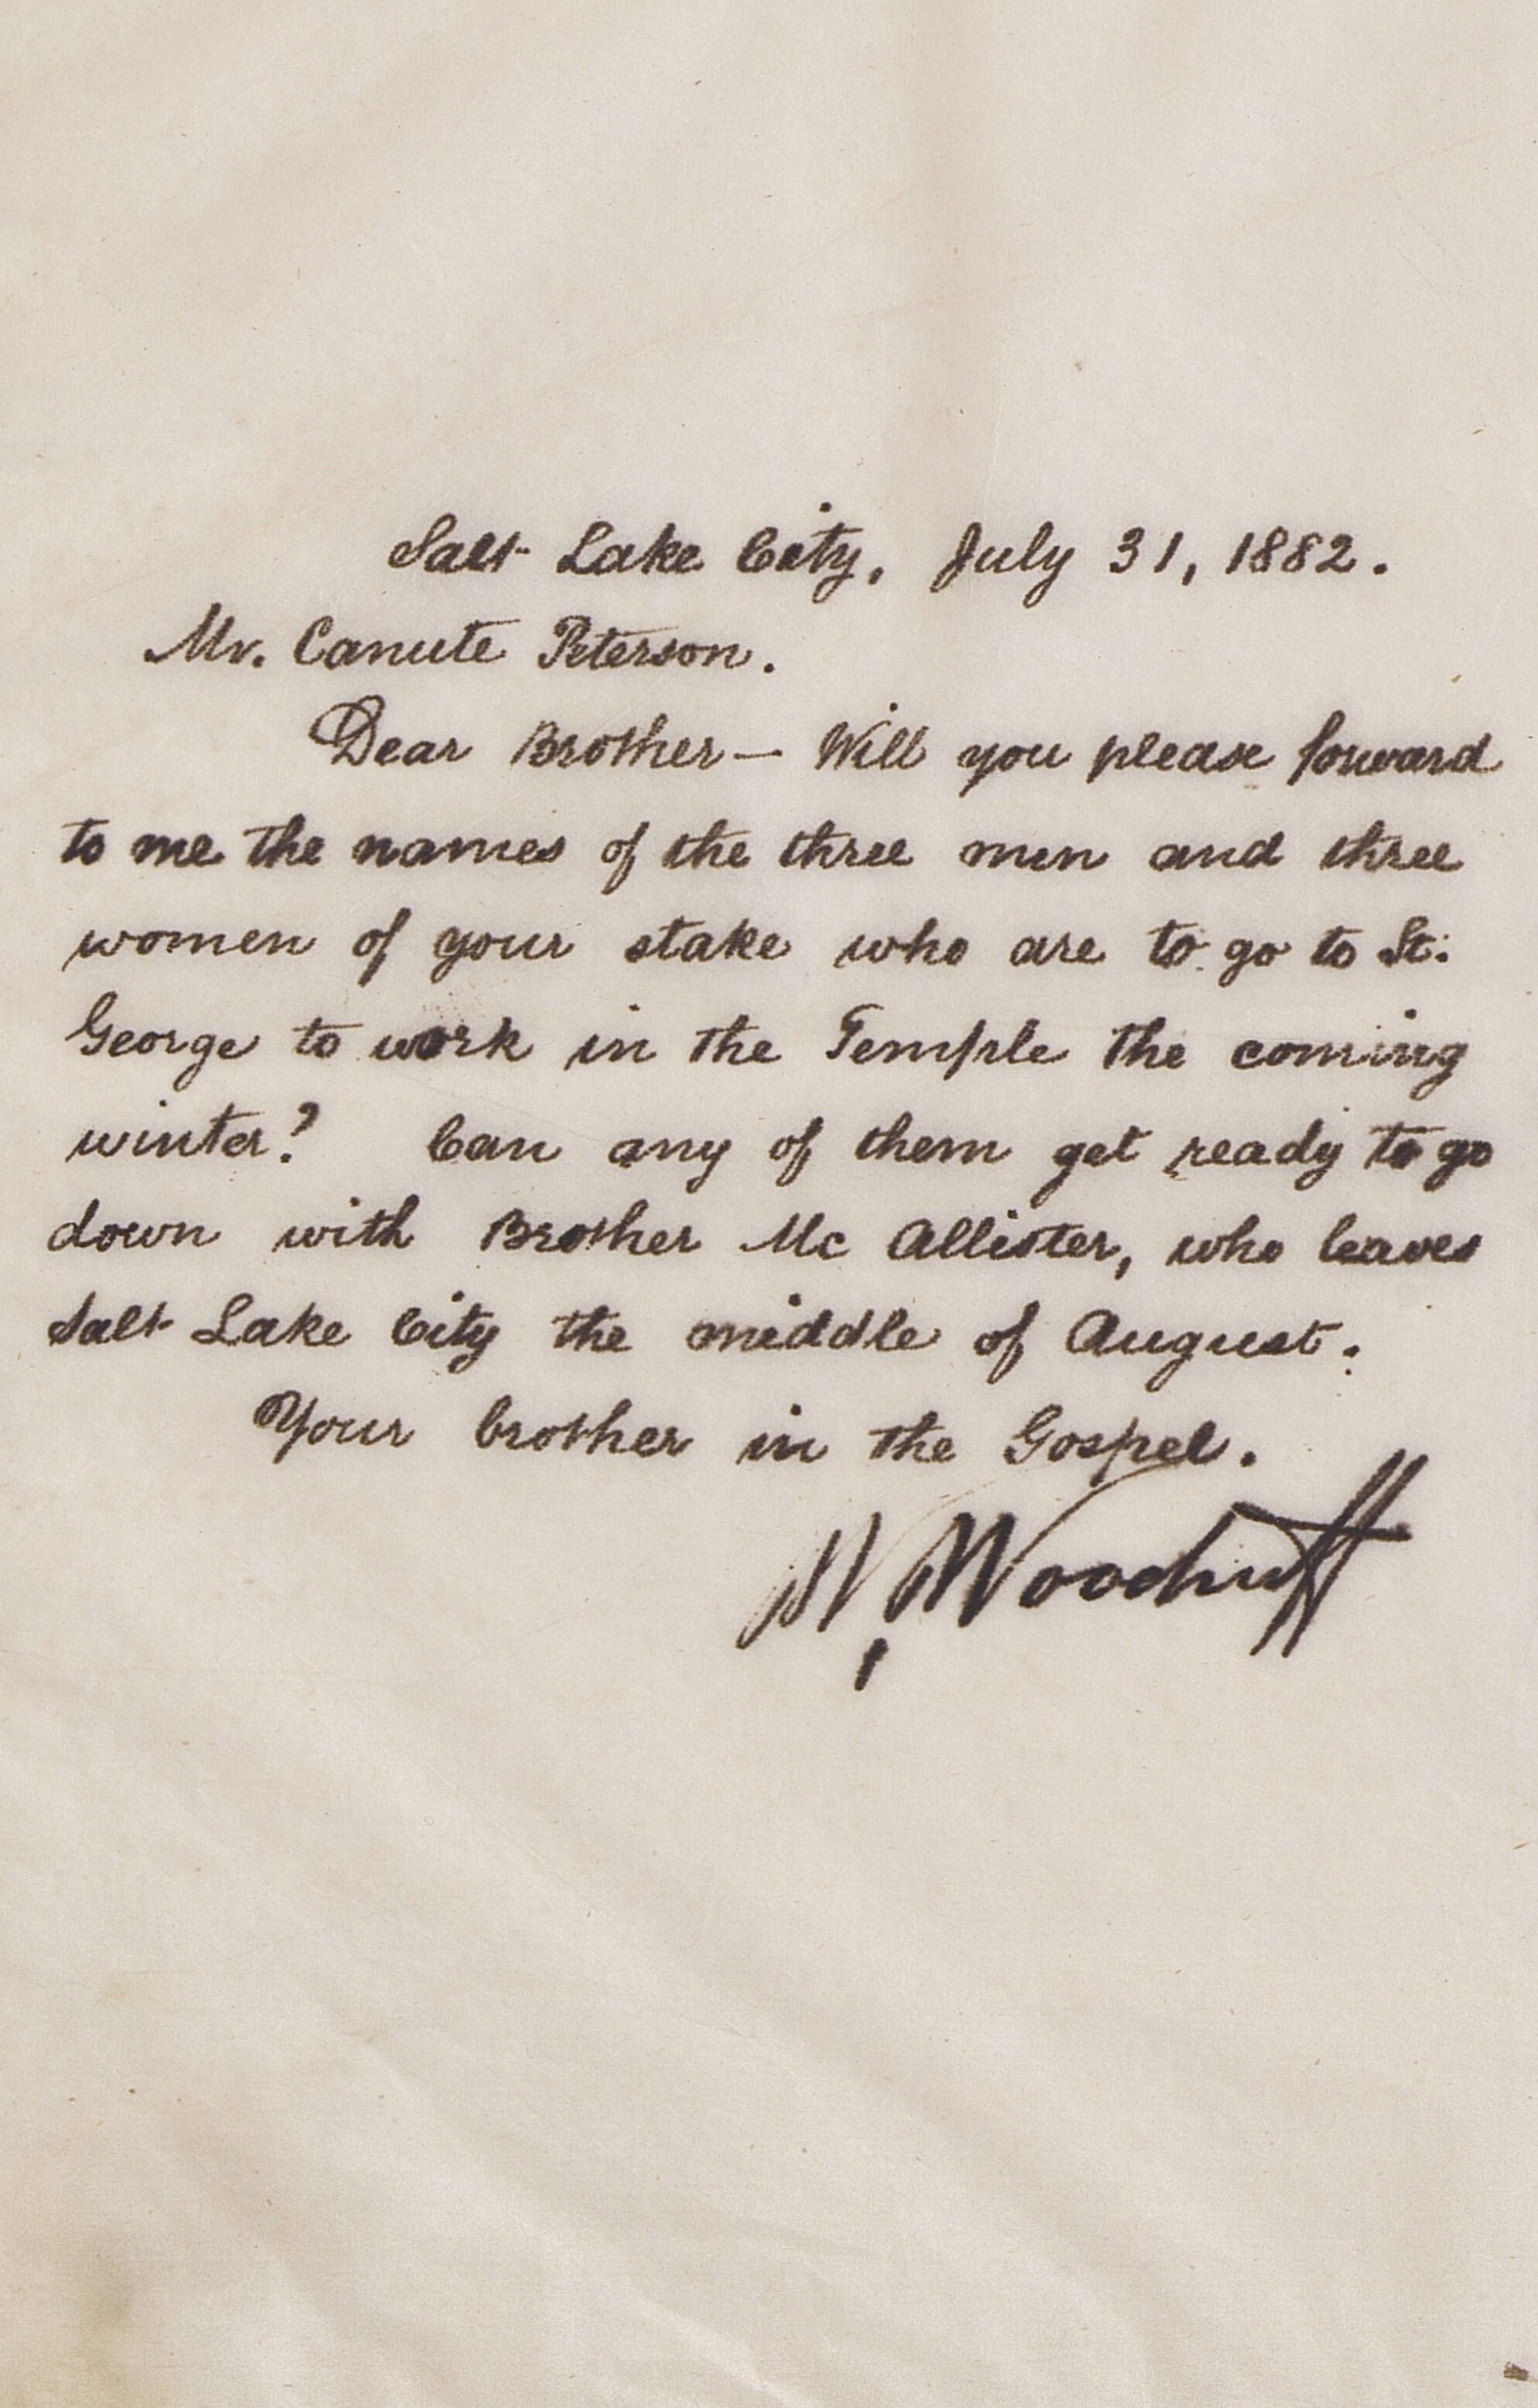 Salt Lake City, July 31, 1882.
Mr. Canute Peterson.
Dear Brother— Will you please forward
to me the names of the three men and three
women of your stake who are to go to St.
George to work in the Temple the coming
winter? Can any of them get ready to go
down with Brother Mc Allister, who leaves
Salt Lake City the middle of August.
Your brother in the Gospel.
W. Woodruff